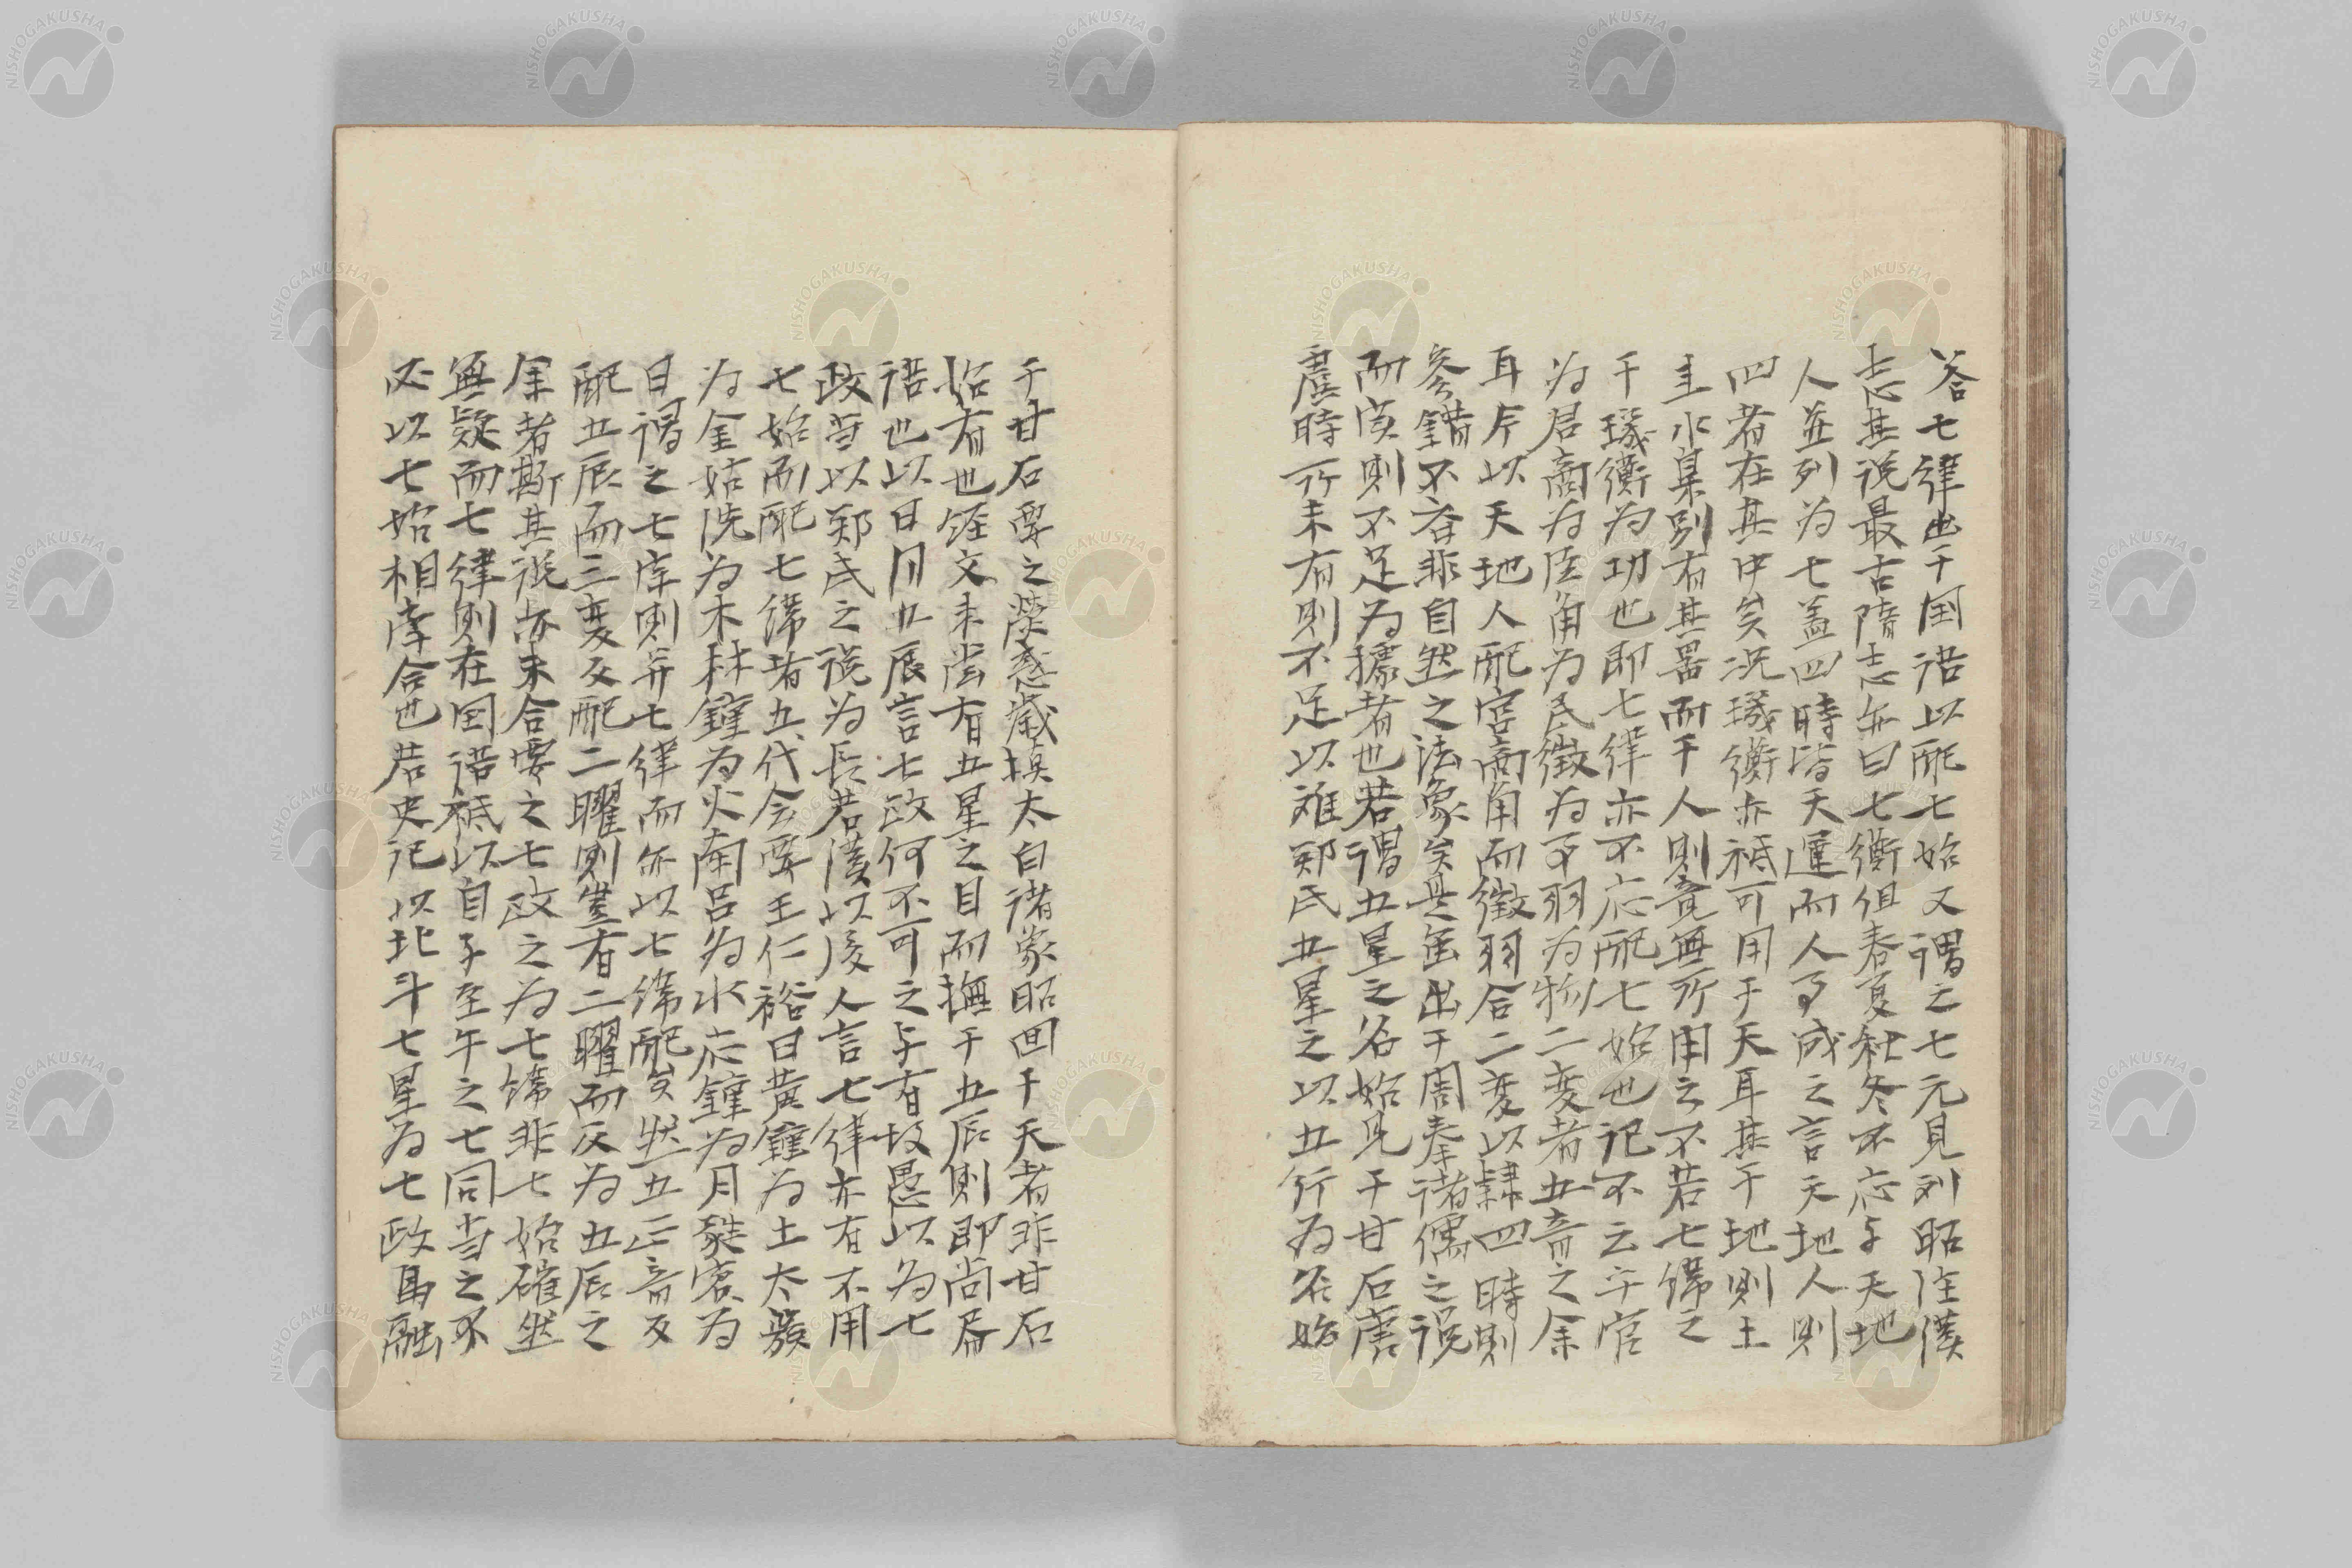 答七律出于国语以配七始又谓之七元見列昭注漢
志其说最古隋志亦曰七衡但春夏秋冬不応与天地
人並列为七盖四時皆天運而人事成之言天地人則
四者在其中矣况璣衡亦祗可用于天耳其于地則土
圭水臬別有其噐而于人則竟無所用之不若七緯之
于璣衡为功也即七律亦不応配七始也记不云乎宮
为君商为臣角为民徵为事羽为物二変者五音之余
耳斥以天地人配宮商角而徵羽合二変以隷四時則
参錯不倫非自然之法象矣是盖出于周秦诸儒之说
而実則不足为據者也若谓五星之名始見于甘石唐
虞時所未有則不足以难郑氏五星之以五行为名始
于甘石要之熒惑歳填太白诸象昭回于天者非甘石
始有也経文未尝有五星之目而撫于五辰則即尚书
语也以日月五辰言七政何不可之与有故愚以为七
政当以郑氏之说为長若漢以後人言七律亦有不用
七始而配七緯者五代会要王仁裕曰黄鐘为土太簇
为金姑洗为木林鐘为火南吕为水応鐘为月蕤賓为
日谓之七宗則并七律而亦以七緯配矣然五正音及
配五辰而三変反配二曜則豈有二曜而反为五辰之
余者斯其说亦未合要之七政之为七緯非七始確然
無疑而七律則在国语祗以自子至午之七同当之不
必以七始相牽合也若史记以北斗七星为七政馬融